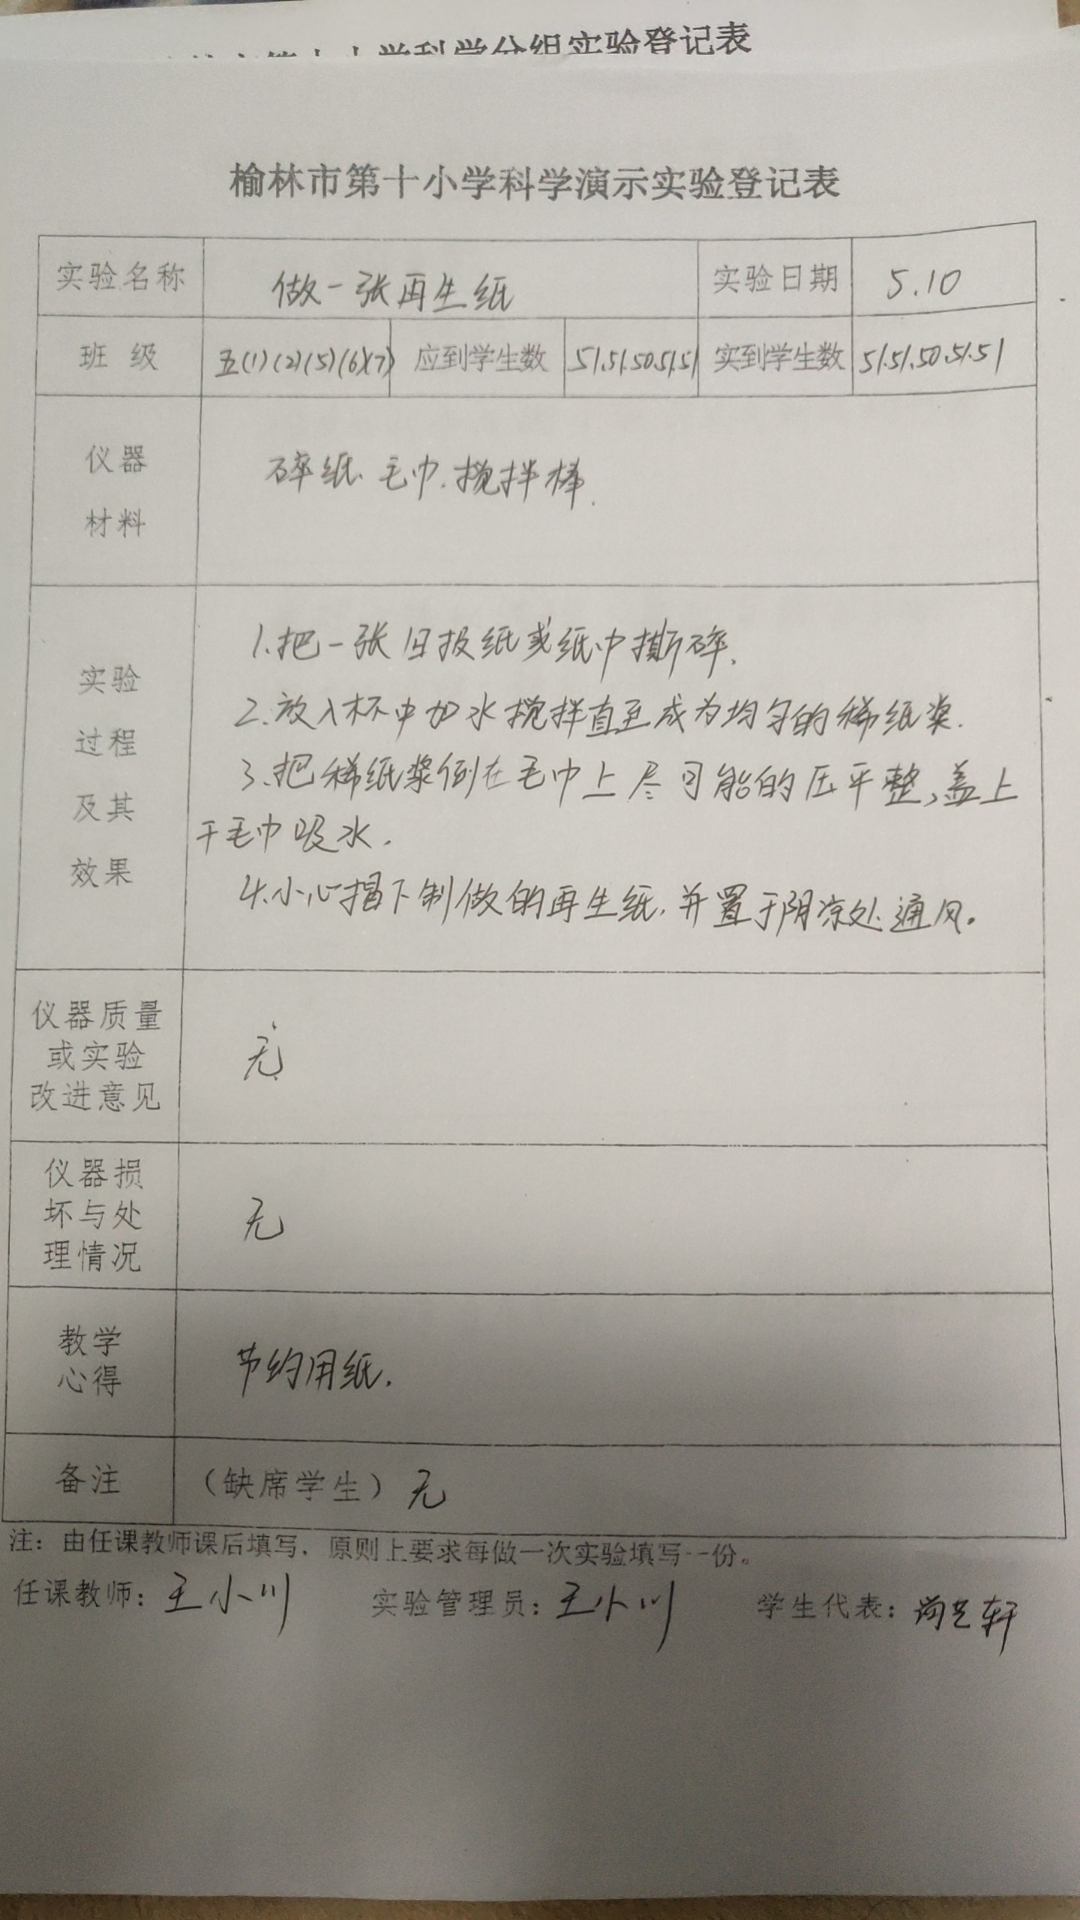 学科学分组实验登记表
榆林市第十小学科学演示实验登记表
实验名称 做一张再生纸 实验日期 5.10
班 级 五(1)(2)(5)(6)(7) 应到学生数 51.51.50.51.51 实到学生数 51.51.50.51.51
仪器
材料
碎纸、毛巾、搅拌棒.
实验
过程
及其
效果
1.把一张旧报纸或纸巾撕碎.
2.放入杯中加水搅拌直至成为均匀的稀纸浆.
3.把稀纸浆倒在毛巾上尽可能的压平整,盖上
干毛巾吸水.
4.小心揭下制做的再生纸,并置于阴凉处通风。
仪器质量
或实验
改进意见
无
仪器损
坏与处
理情况
无
教学
心得
节约用纸.
备注 （缺席学生）无
注：由任课教师课后填写，原则上要求每做一次实验填写一份。
任课教师：王小川 实验管理员：王小川 学生代表：轩